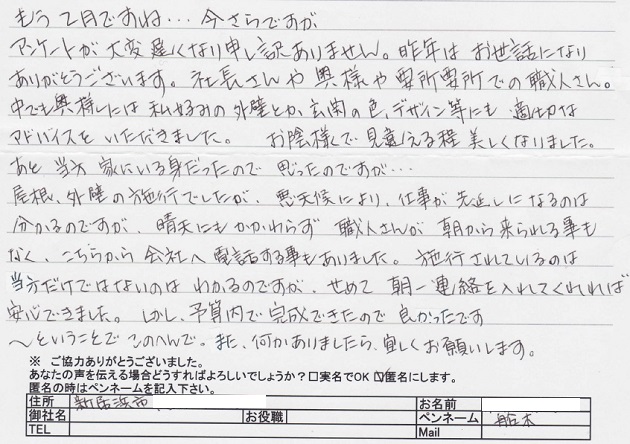 もう2月ですね…今さらですが
アンケートが大変遅くなり申し訳ありません。昨年はお世話になり
ありがとうございます。社長さんや奥様や要所要所での職人さん。
中でも奥様には私好みの外壁とか、玄関の色、デザイン等にも適切な
アドバイスをいただきました。お陰様で見違える程美しくなりました。
あと当方家にいる身だったので思ったのですが…
屋根、外壁の施行でしたが、悪天候により、仕事が先延しになるのは
分かるのですが、晴天にもかかわらず職人さんが朝から来られる事も
なく、こちらから会社へ電話する事もありました。施行されているのは
当方だけではないのはわかるのですが、せめて朝一連絡を入れてくれれば
安心できました。しかし、予算内で完成できたので良かったです
〜ということでこのへんで。また、何かありましたら、宜しくお願いします。
※ ご協力ありがとうございました。
あなたの声を伝える場合どうすればよろしいでしょうか？□実名でOK ☑匿名にします。
匿名の時はペンネームを記入下さい。
住所 新居浜市 お名前
御社名 お役職 ペンネーム 船木
TEL Mail